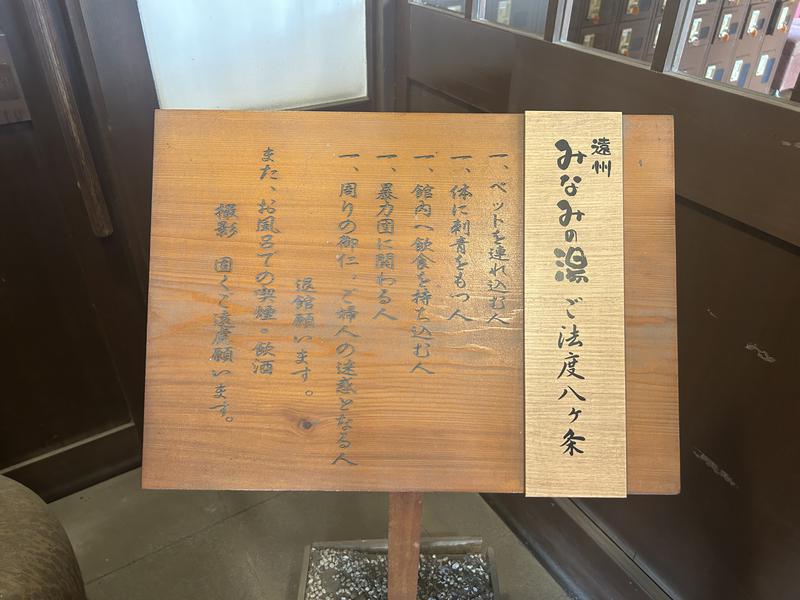 遠州
みなみの湯 ご法度八ヶ条
一、ペットを連れ込む人
一、体に刺青をもつ人
一、館内へ飲食を持ち込む人
一、暴力団に関わる人
一、周りの御仁、ご婦人の迷惑となる人
退館願います。
また、お風呂での喫煙。飲酒
撮影 固くご遠慮願います。